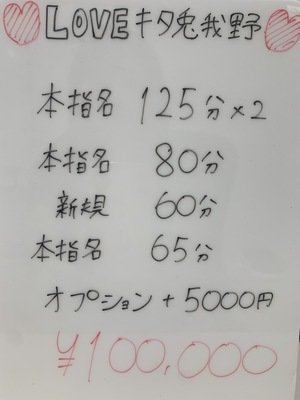 LOVEキタ兎我野
本指名 125分×2
本指名 80分
新規 60分
本指名 65分
オプション+5000円
¥100,000